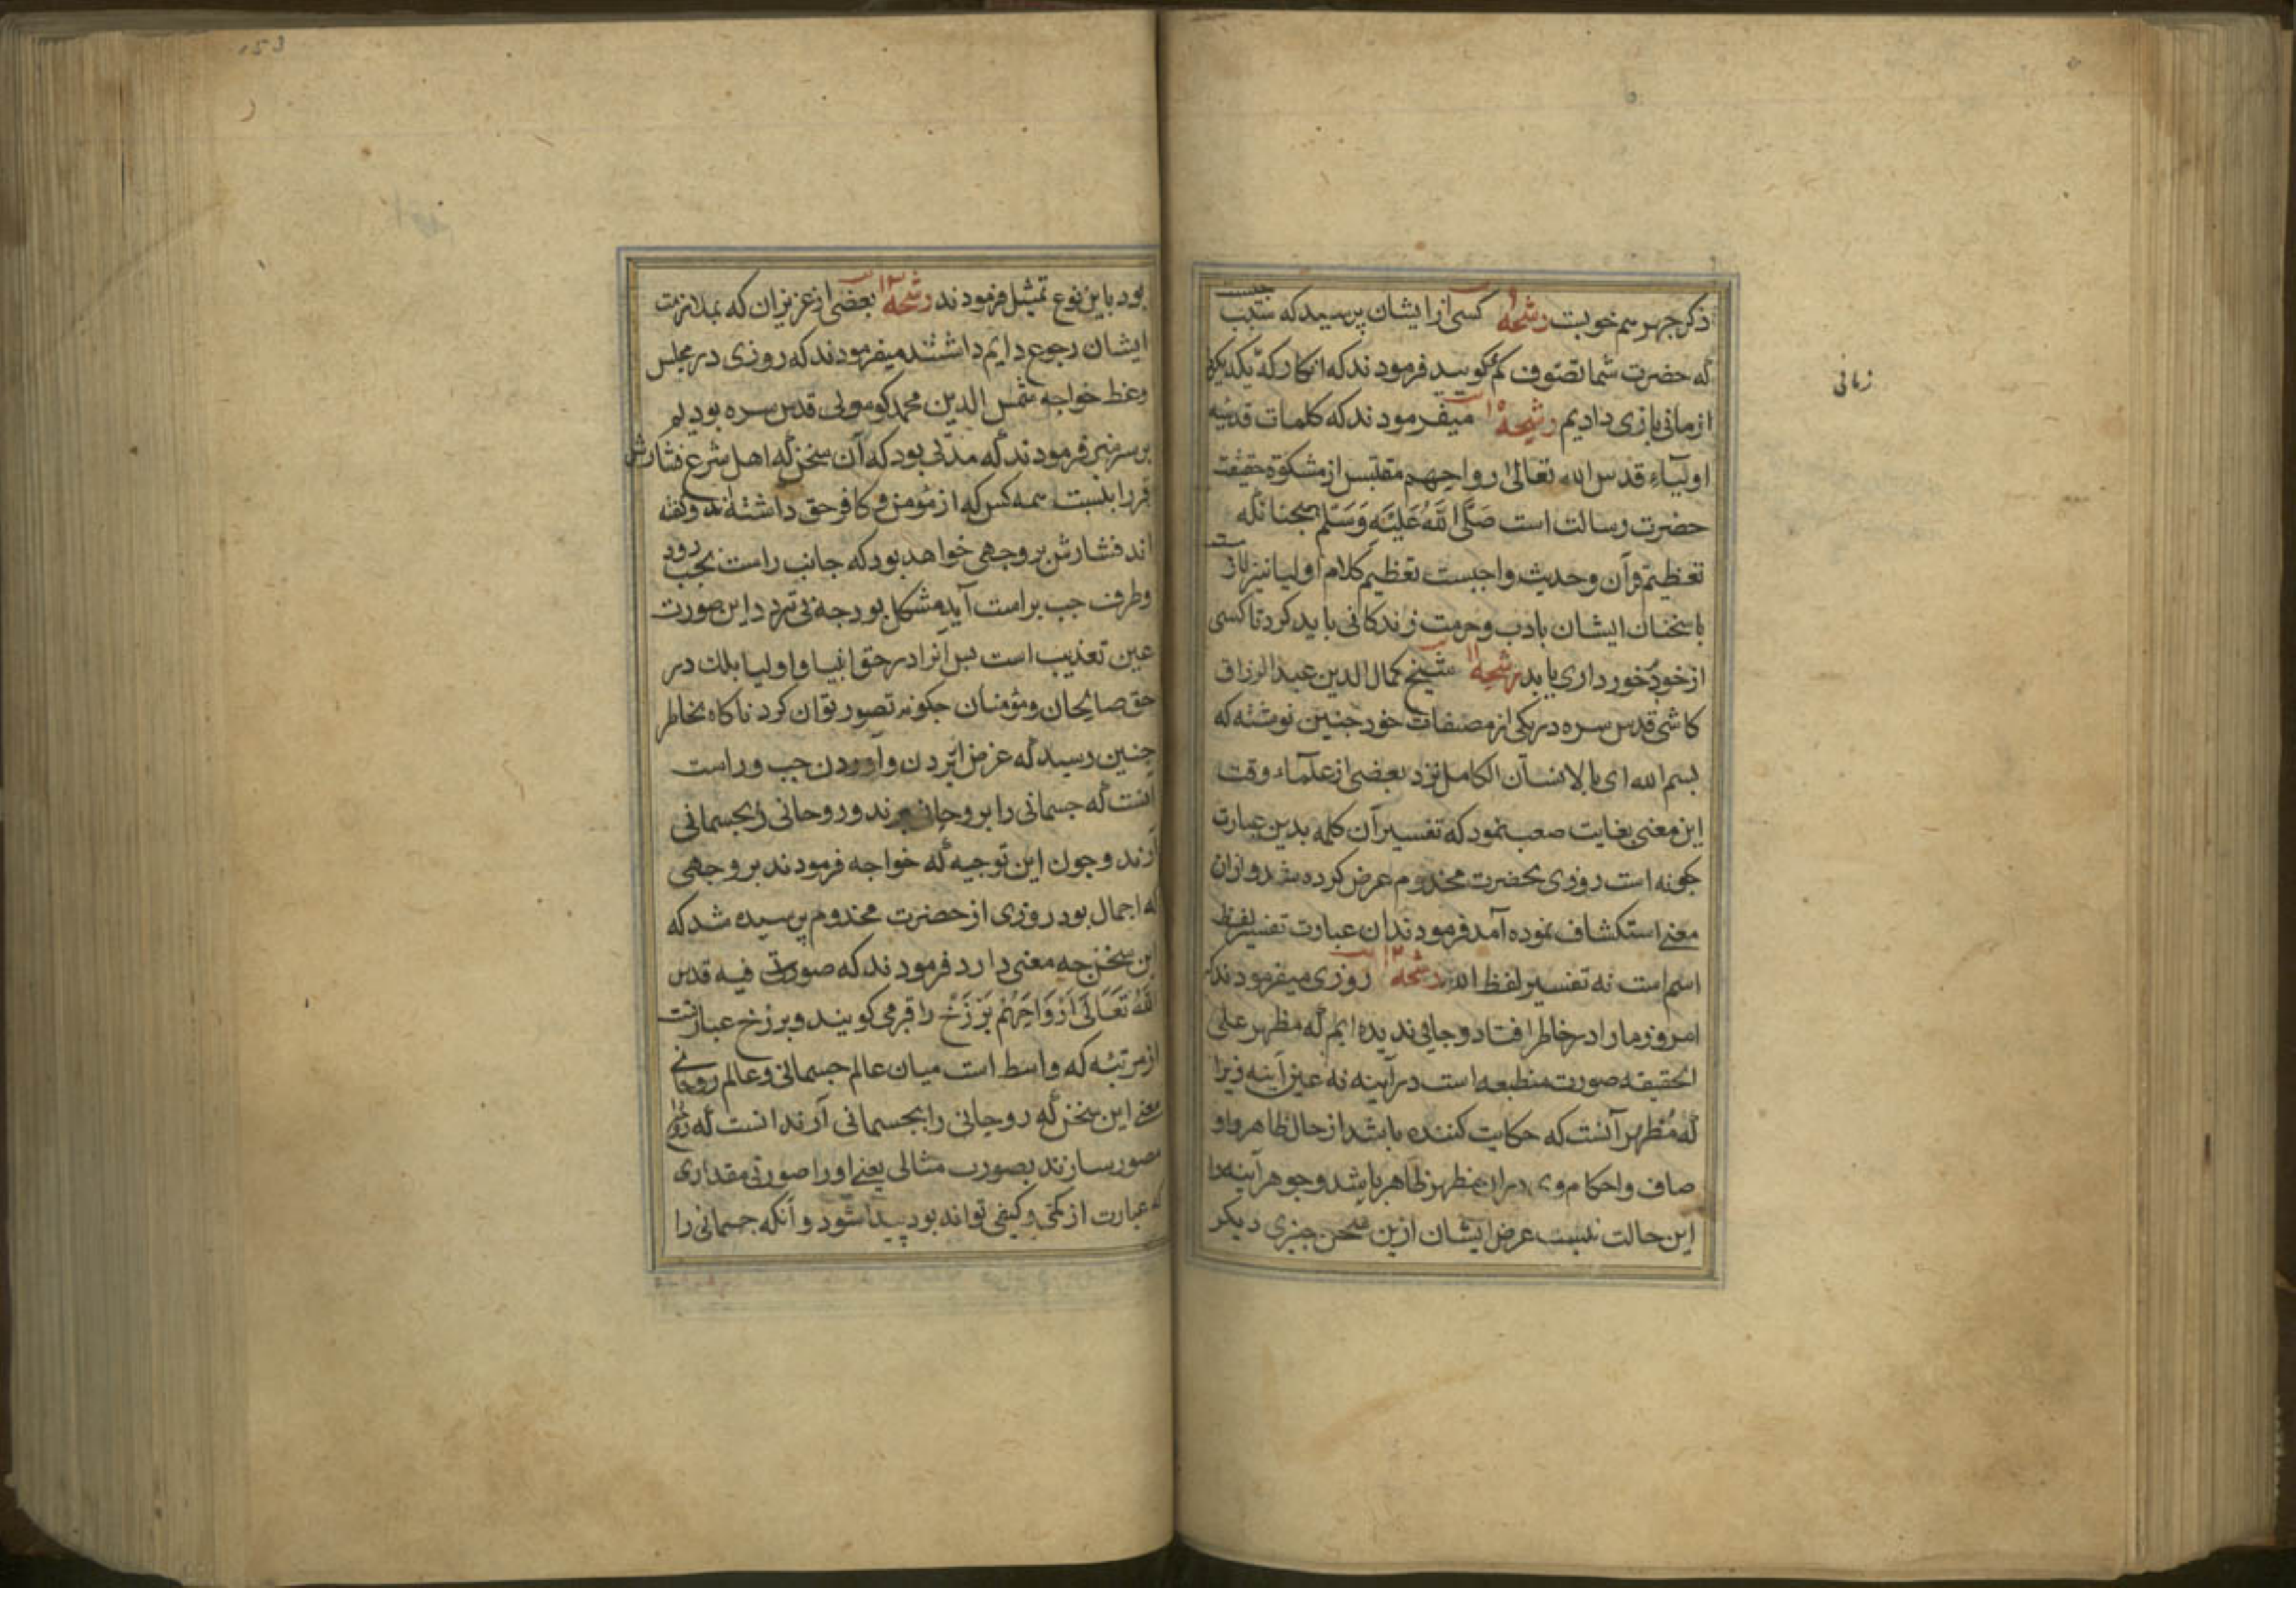 ذکر جهر هم خوبست رشحه ۹ کسی از ایشان پرسید که سبب چیست
که حضرت شما تصوف کم گویید فرمودند که انکار که یکدیگر
زمانی
از مانی بازی دادیم رشحه ۱۰ میفرمودند که کلمات قدسیه
اولیاء قدس الله تعالی ارواحهم مقتبس از مشکوة حقیقت
حضرت رسالت است صَلَّی اللَّهُ عَلَیْهِ وَسَلَّم همچنانکه
تعظیم قرآن و حدیث واجبست تعظیم کلام اولیا نیز لازمست
با سخنان ایشان بادب و حرمت زندکانی باید کرد تا کسی
از خود برخورداری یابد رشحه ۱۱ شیخ کمال الدین عبدالرزاق
کاشی قدس سره در یکی از مصنفات خود جنین نوشته که
بسم الله ای بالانسان الکامل نزد بعضی از علماء وقت
این معنی بغایت صعب نمود که تفسیر آن کلمه بدین عبارت
جکونه است روزی بحضرت مخدوم عرض کرده شد و ازان
معنی استکشاف نموده آمد فرمودند ان عبارت تفسیر لفظ
اسم است نه تفسیر لفظ الله رشحه ۱۲ روزی میفرمودند که
امروز ما را در خاطر افتاد و جایی ندیده ایم که مظهر علی
الحقیقه صورت منطبعه است در آینه نه عین آینه زیرا
که مُظهر آنست که حکایت کننده باشد از حال ظاهر و او
صاف و احکام وی دران مظهر ظاهر باشد و جوهر آینه را
این حالت نیست غرض ایشان ازین سخن جیزی دیکر
بود باین نوع تمثیل فرمودند رشحه ۱۳ بعضی از عزیزان که بملازمت
ایشان رجوع دایم داشتند میفرمودند که روزی در مجلس
وعظ خواجه شمس الدین محمد کوسوی قدس سره بودیم
بر سر منبر فرمودند که مدتی بود که آن سخن که اهل شرع فشارش
قبر را بنسبت همه کس که از مؤمن و کافر حق داشته اند و گفته
اند فشارش بر وجهی خواهد بود که جانب راست بجب رود
و طرف جب براست آید مشکل بود جه این صورت
عین تعذیب است بس آنرا در حق انبیا و اولیا بلک در
حق صالحان و مؤمنان جکونه تصور توان کرد ناکاه بخاطر
جنین رسید که غرض از بردن و آوردن جب و راست
آنست که جسمانی را بروحانی برند و روحانی را بجسمانی
آرند و جون این توجیه که خواجه فرمودند بر وجهی
که اجمال بود روزی از حضرت مخدوم پرسیده شد که
این سخن جه معنی دارد فرمودند که صوفیه قدس
اللَّهُ تَعَالَی اَرْوَاحَهُمْ بَرْزَخْ را قبر می کویند و برزخ عبارتست
از مرتبه که واسط است میان عالم جسمانی و عالم روحانی
معنی این سخن که روحانی را بجسمانی آرند انست که روح را
مصور سازند بصورت مثالی یعنی او را صورتی مقداری
که عبارت از کمّی و کیفی تواند بود پیدا شود و آنکه جسمانی را